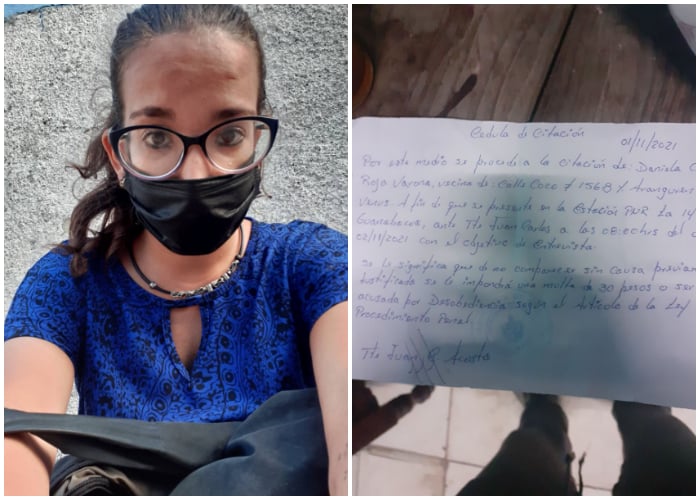 Cedula de Citación
01/11/2021
Por este medio se procede a la citación de: Daniela
Rojo Varona, vecina de: Calle Coco # 156B %
Venus. A fin de que se presente en la Estación PNR La
Guanabacoa, ante Tte Juan Carlos a las 08:00hrs del
02/11/2021 con el objetivo de Entrevista.
Se le significa que de no comparecer sin causa
Justificada se le impondrá una multa de 30 pesos o ser
acusada por Desobediencia según el Artículo de la Ley
Procedimiento Penal.
Tte Juan C. Acosta